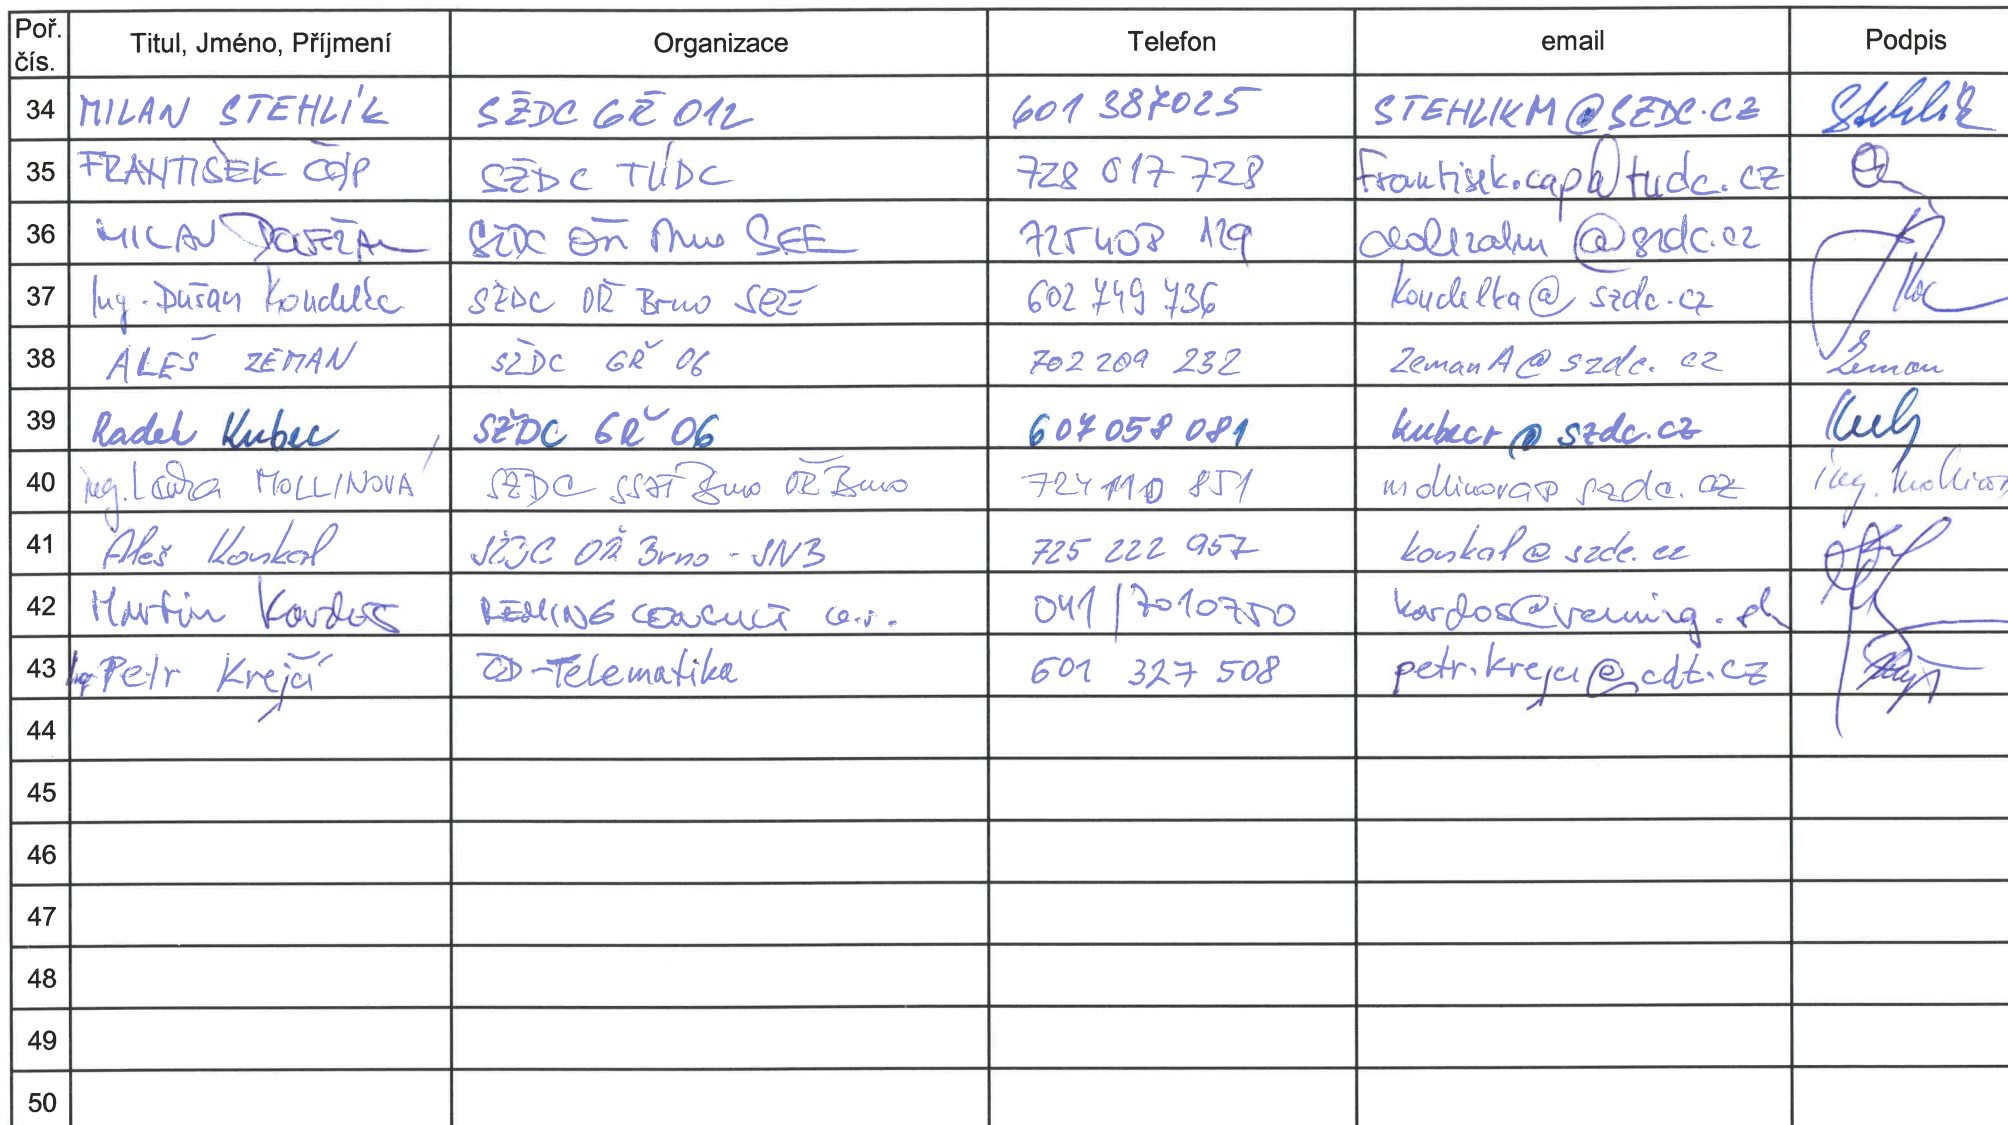 Poř. čís. Titul, Jméno, Příjmení Organizace Telefon email Podpis
34 MILAN STEHLÍK SŽDC GŘ O12 601 387025 STEHLIKM@SZDC.CZ Stehlík
35 FRANTIŠEK ČÁP SŽDC TÚDC 728 017 728 Frantisek.cap@tudc.cz
36 MILAN DOLEŽAL SŽDC OŘ Brno SEE 725 408 129 @szdc.cz
37 Ing. Dušan Koudelka SŽDC OŘ Brno SEE 602 749 736 koudelka@szdc.cz
38 ALEŠ ZEMAN SŽDC GŘ 06 702 209 232 ZemanA@szdc.cz Zeman
39 Radek Kubec SŽDC GŘ 06 607 058 081 kubecr@szdc.cz
40 Ing. MOLLINOVÁ SŽDC SSZT Brno OŘ Brno 724 110 851 mollinova@szdc.cz ing. Mollinov
41 Aleš Konkal SŽDC OŘ Brno - 725 222 957 konkal@szdc.cz
42 Martin Kardoš REMING CONSULT a.s. 041/7010750 kardos@reming.sk
43 Ing. Petr Krejčí ČD-Telematika 601 327 508 petr.krejci@cdt.cz
44
45
46
47
48
49
50